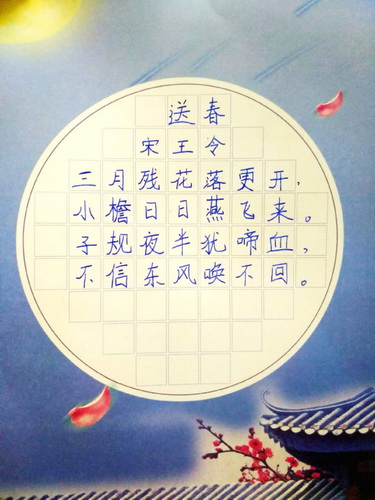 送春
宋王令
三月残花落更开，
小檐日日燕飞来。
子规夜半犹啼血，
不信东风唤不回。